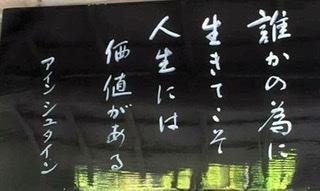 誰かの為に
生きてこそ
人生には
価値がある
アインシュタイン